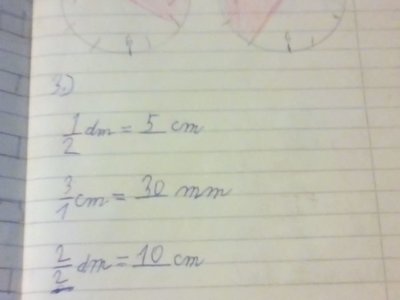 6 6
3.)
1/2 dm = 5 cm
3/1 cm = 30 mm
2/2 dm = 10 cm